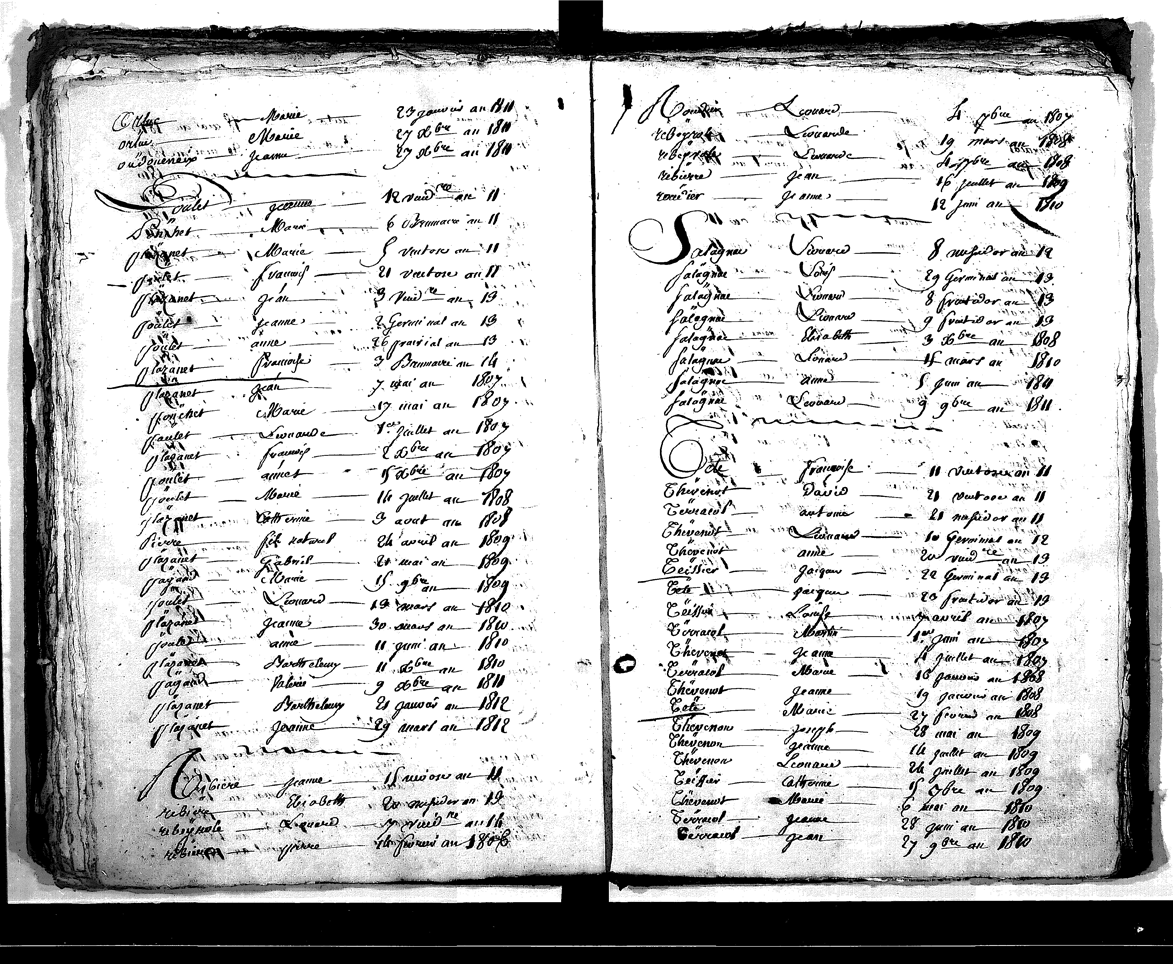 Marie 23 janvier an 1811
ortuc Marie 27 Xbre an 1811
jeanne 27 Xbre an 1811
Poulet 12 vend re an 11
Marie 6 Brumaire an 11
plazanet Marie 5 ventose an 11
poulet françois 21 ventose an 11
plazanet jean 3 vend re an 13
poulet jeanne 2 Germinal an 13
poulet anne 26 prairial an 13
plazanet françoise 3 Brumaire an 14
plazanet jean 7 mai an 1807
pouchet Marie 17 mai an 1807
paulet Leonarde 1er juillet an 1807
plazanet françois 2 Xbre an 1807
poulet annet 15 Xbre an 1807
poulet Marie 14 juillet an 1808
plazanet Catherine 3 aout an 1808
Pierre fils naturel 24 avril an 1809
plazanet Gabriel 21 mai an 1809
pagaud Marie 15 9bre an 1809
poulet Léonard 13 mars an 1810
plazanet jeanne 30 mars an 1810
poulet anne 11 juin an 1810
plazanet Barthelemy 11 Xbre an 1810
pagaud Valerie 9 Xbre an 1811
plazanet Barthelemy 21 janvier an 1812
plazanet jeanne 29 mars an 1812
Rebiere jeanne 15 nivose an 11
rebiere Elisabeth 20 messidor an 13
rebeyrole Leonard 7 vend re an 14
rebiere pierre 14 fevrier an 1806
Leonard 4 7bre an 1807
rebeyrole Leonarde 19 mars an 1808
rebeyrole Leonarde 4 7bre an 1808
rebierre jean 16 juillet an 1809
jeanne 12 juin an 1810
Salagnac Leonard 8 messidor an 12
salagnac Louis 29 Germinal an 13
salagnac Leonard 8 fructidor an 13
salagnac Léonard 9 fructidor an 13
salagnac Elisabeth 3 Xbre an 1808
salagnac Léonard 15 mars an 1810
salagnac anne 5 juin an 1811
salagnac Léonard 9 9bre an 1811
Tête françoise 11 ventose an 11
Thévenot David 21 ventose an 11
Terracol antoine 21 messidor an 11
Thévenot Léonard 10 Germinal an 12
Thévenot anne 20 vend re an 13
Teissier jacques 22 Germinal an 13
Tête jacques 23 fructidor an 13
Teissier Louise 7 avril an 1807
Terracol Martin 1er juin an 1807
Thévenot jeanne 4 juillet an 1807
Terracol Marie 16 janvier an 1808
Thévenot jeanne 19 janvier an 1808
Tête Marie 27 fevrier an 1808
Thevenon joseph 28 mai an 1809
Thévenon jeanne 14 juillet an 1809
Thévenon Léonard 24 juillet an 1809
Teissier Catherine 15 7bre an 1809
Thévenot Marie 6 mai an 1810
Terracol jeanne 28 juin an 1810
Terracol jean 27 9bre an 1810